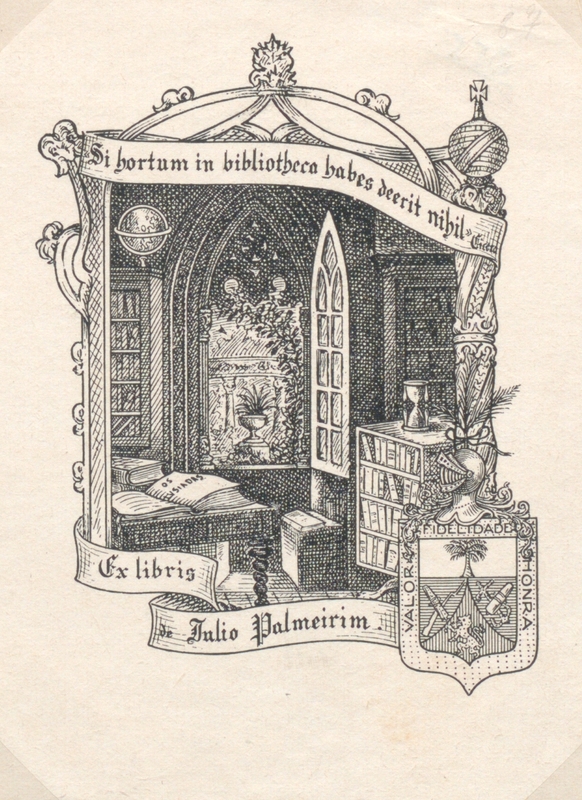 Si hortum in bibliotheca habes deerit nihil
OS LUSIADES
Ex libris
de Julio Palmeirim
FIDELIDADE
VALOR
HONRA